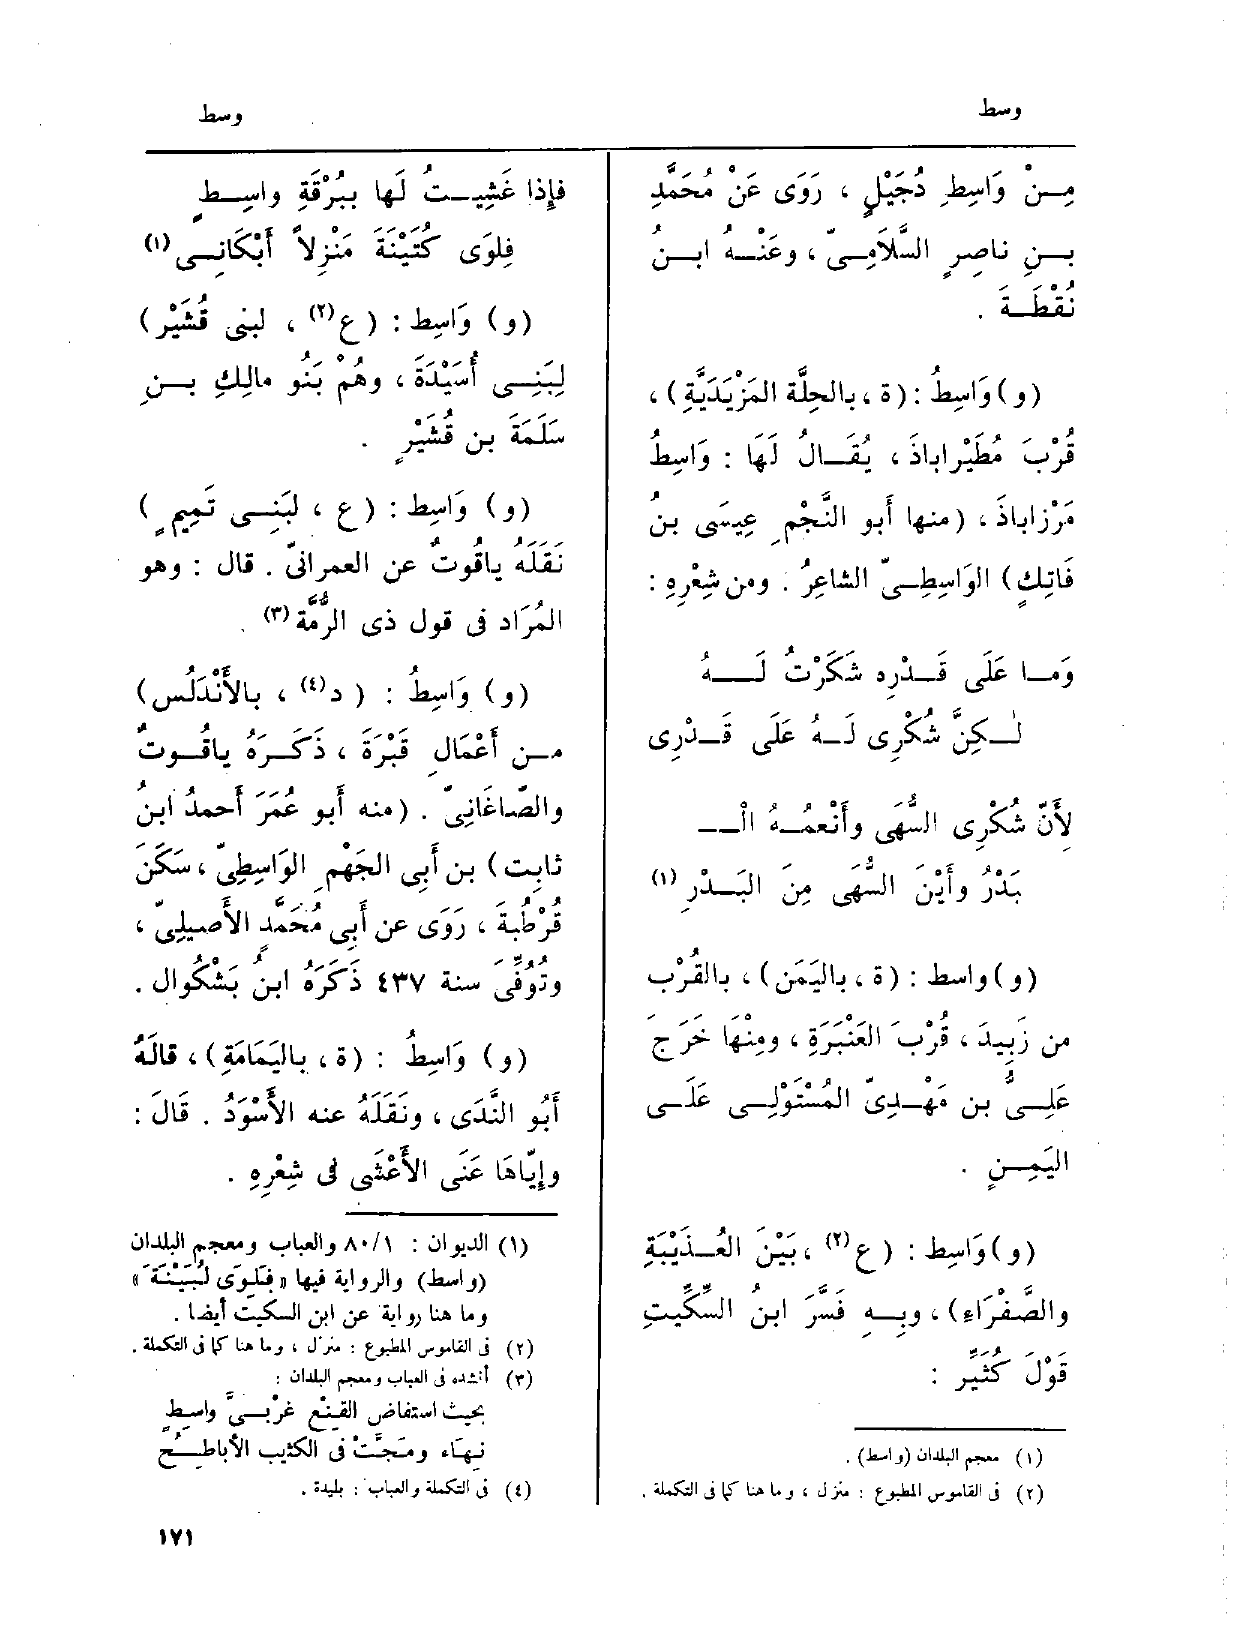 وسط
وسط
مِـنْ وَاسِطِ دُجَيْلٍ ، رَوَى عَنْ مُحَمَّدِ
بـنِ ناصِرٍ السَّلَامِـىّ ، وعَنْـهُ ابـنُ
نُقْطَـةَ .
(و) وَاسِطُ : (ة ، بالحِلَّة المَزْيَدِيَّةِ) ،
قُرْبَ مُطَيْراباذَ ، يُقَـالُ لَهَا : وَاسِطُ
مَرْزاباذَ ، (منها أَبو النَّجْمِ عِيسَى بنُ
فَاتِكٍ) الوَاسِطِـىّ الشاعِرُ . ومن شِعْرِهِ :
وَمـا عَلَى قَـدْرِه شَكَرْتُ لَـــهُ
لٰـكِنَّ شُكْرِى لَـهُ عَلَى قَـدْرِى
لأَنّ شُكْرِى السُّهَى وأَنْعمُـهُ الْــ
بَدْرُ وأَيْنَ السُّهَى مِنَ البَـدْرِ (١)
(و) واسط : (ة ، باليَمَن) ، بالقُرْبِ
من زَبِيدَ ، قُرْبَ العَنْبَرَةِ ، ومِنْهَا خَرَجَ
عَلِـىُّ بن مَهْـدِىّ المُسْتَوْلِـى عَلَـى
اليَمـنِ .
(و) وَاسِط : (ع (٢) ، بَيْنَ العُـذَيْبَةِ
والصَّفْرَاءِ) ، وبِـهِ فَسَّرَ ابنُ السِّكِّيتِ
قَوْلَ كُثَيِّرٍ :
(١) معجم البلدان (واسط) .
(٢) فى القاموس المطبوع : منزل ، وما هنا كما فى التكملة .
فإِذا غَشِيـتُ لَها ببُرْقَةِ واسِـطٍ
فلِوَى كُتَيْنَةَ مَنْزِلاً أَبْكَانِـى (١)
(و) وَاسِط : (ع (٢) ، لبنى قُشَيْر)
لِبَنِـى أُسَيْدَةَ ، وهُمْ بَنُو مالِكِ بـنِ
سَلَمَةَ بن قُشَيْرٍ .
(و) وَاسِط : (ع ، لبَنِـى تَمِيمٍ)
نَقَلَهُ ياقُوتٌ عن العمرانىّ . قال : وهو
المُرَاد فى قول ذى الرُّمَّة (٣) .
(و) وَاسِطُ : (د (٤) ، بالأَنْدَلُس)
مـن أَعْمَالِ قَبْرَةَ ، ذَكَـرَهُ ياقُـوتٌ
والصّاغَانِىّ . (منه أَبو عُمَرَ أَحمدُ ابنُ
ثابِت) بن أَبِى الجَهْمِ الوَاسِطِىّ ، سَكَنَ
قُرْطُبَةَ ، رَوَى عن أَبِى مُحَمَّد الأَصِيلِىّ ،
وتُوُفِّىَ سنة ٤٣٧ ذَكَرَهُ ابنُ بَشْكُوال .
(و) وَاسِطُ : (ة ، باليَمَامَةِ) ، قالَهُ
أَبُو النَّدَى ، ونَقَلَهُ عنه الأَسْوَدُ . قَالَ :
وإِيّاهَا عَنَى الأَعْشَى فى شِعْرِهِ .
(١) الديوان : ٨٠/١ والعباب ومعجم البلدان
(واسط) والرواية فيها «فَلِوَى لُبَيْنَةَ»
وما هنا رواية عن ابن السكيت أيضا .
(٢) فى القاموس المطبوع : منزل ، وما هنا كما فى التكملة .
(٣) أنشده فى العباب ومعجم البلدان :
بحيث استفاض القِنْع غَرْبِـىَّ واسِطٍ
نِهَاء ومَجَّتْ فى الكثيب الأباطـحُ
(٤) فى التكملة والعباب : بليدة .
١٧١